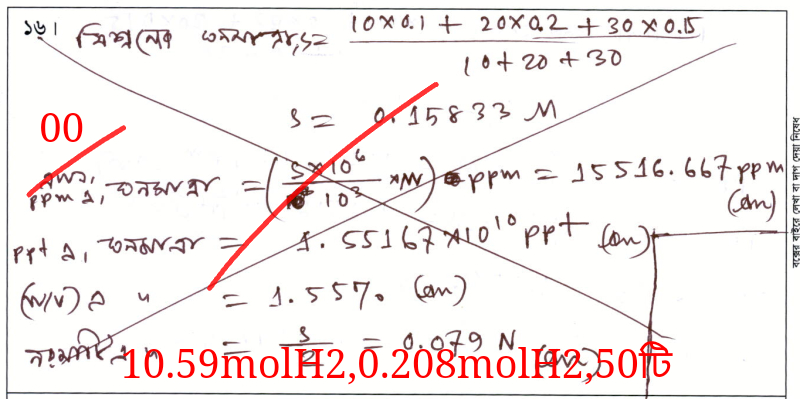 ১৬। মিশ্রণের ঘনমাত্রা, S = (10×0.1 + 20×0.2 + 30×0.15)/(10+20+30)
S = 0.15833 M
00
ppm এ, ঘনমাত্রা = (S×10⁶/10³ ×M) ppm = 15516.667 ppm (Ans)
ppt এ, ঘনমাত্রা = 1.55167×10¹⁰ ppt (Ans)
(W/V) এ " = 1.557% (Ans)
নরমালিটি এ " = S/2 = 0.079 N (Ans)
10.59molH2,0.208molH2,50টি
বক্সের বাইরে লেখা বা দাগ দেয়া নিষেধ